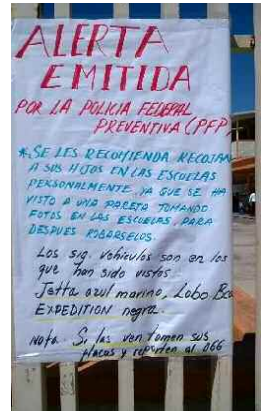 ALERTA
EMITIDA
POR LA POLICIA FEDERAL
PREVENTIVA (PFP
*SE LES RECOMIENDA RECOJAN
A SUS HIJOS EN LAS ESCUELAS
PERSONALMENTE, YA QUE SE HA
VISTO A UNA PAREJA TOMANDO
FOTOS EN LAS ESCUELAS, PARA
DESPUES ROBARSELOS.
LOS sig. vehiculos son en los
que han sido vistos.
Jetta azul marino, Lobo Bca
EXPEDITION negra.
Nota. Si las ven tomen sus
placas y reporten al 066